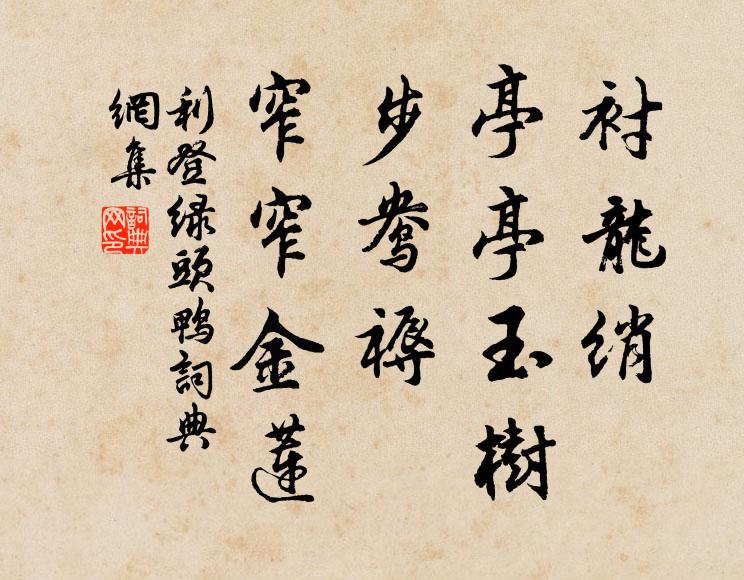 衬龍綃
亭亭玉樹
步鴦褥
窄窄金蓮
利登绿頭鴨詞典
網集
詞典
网印